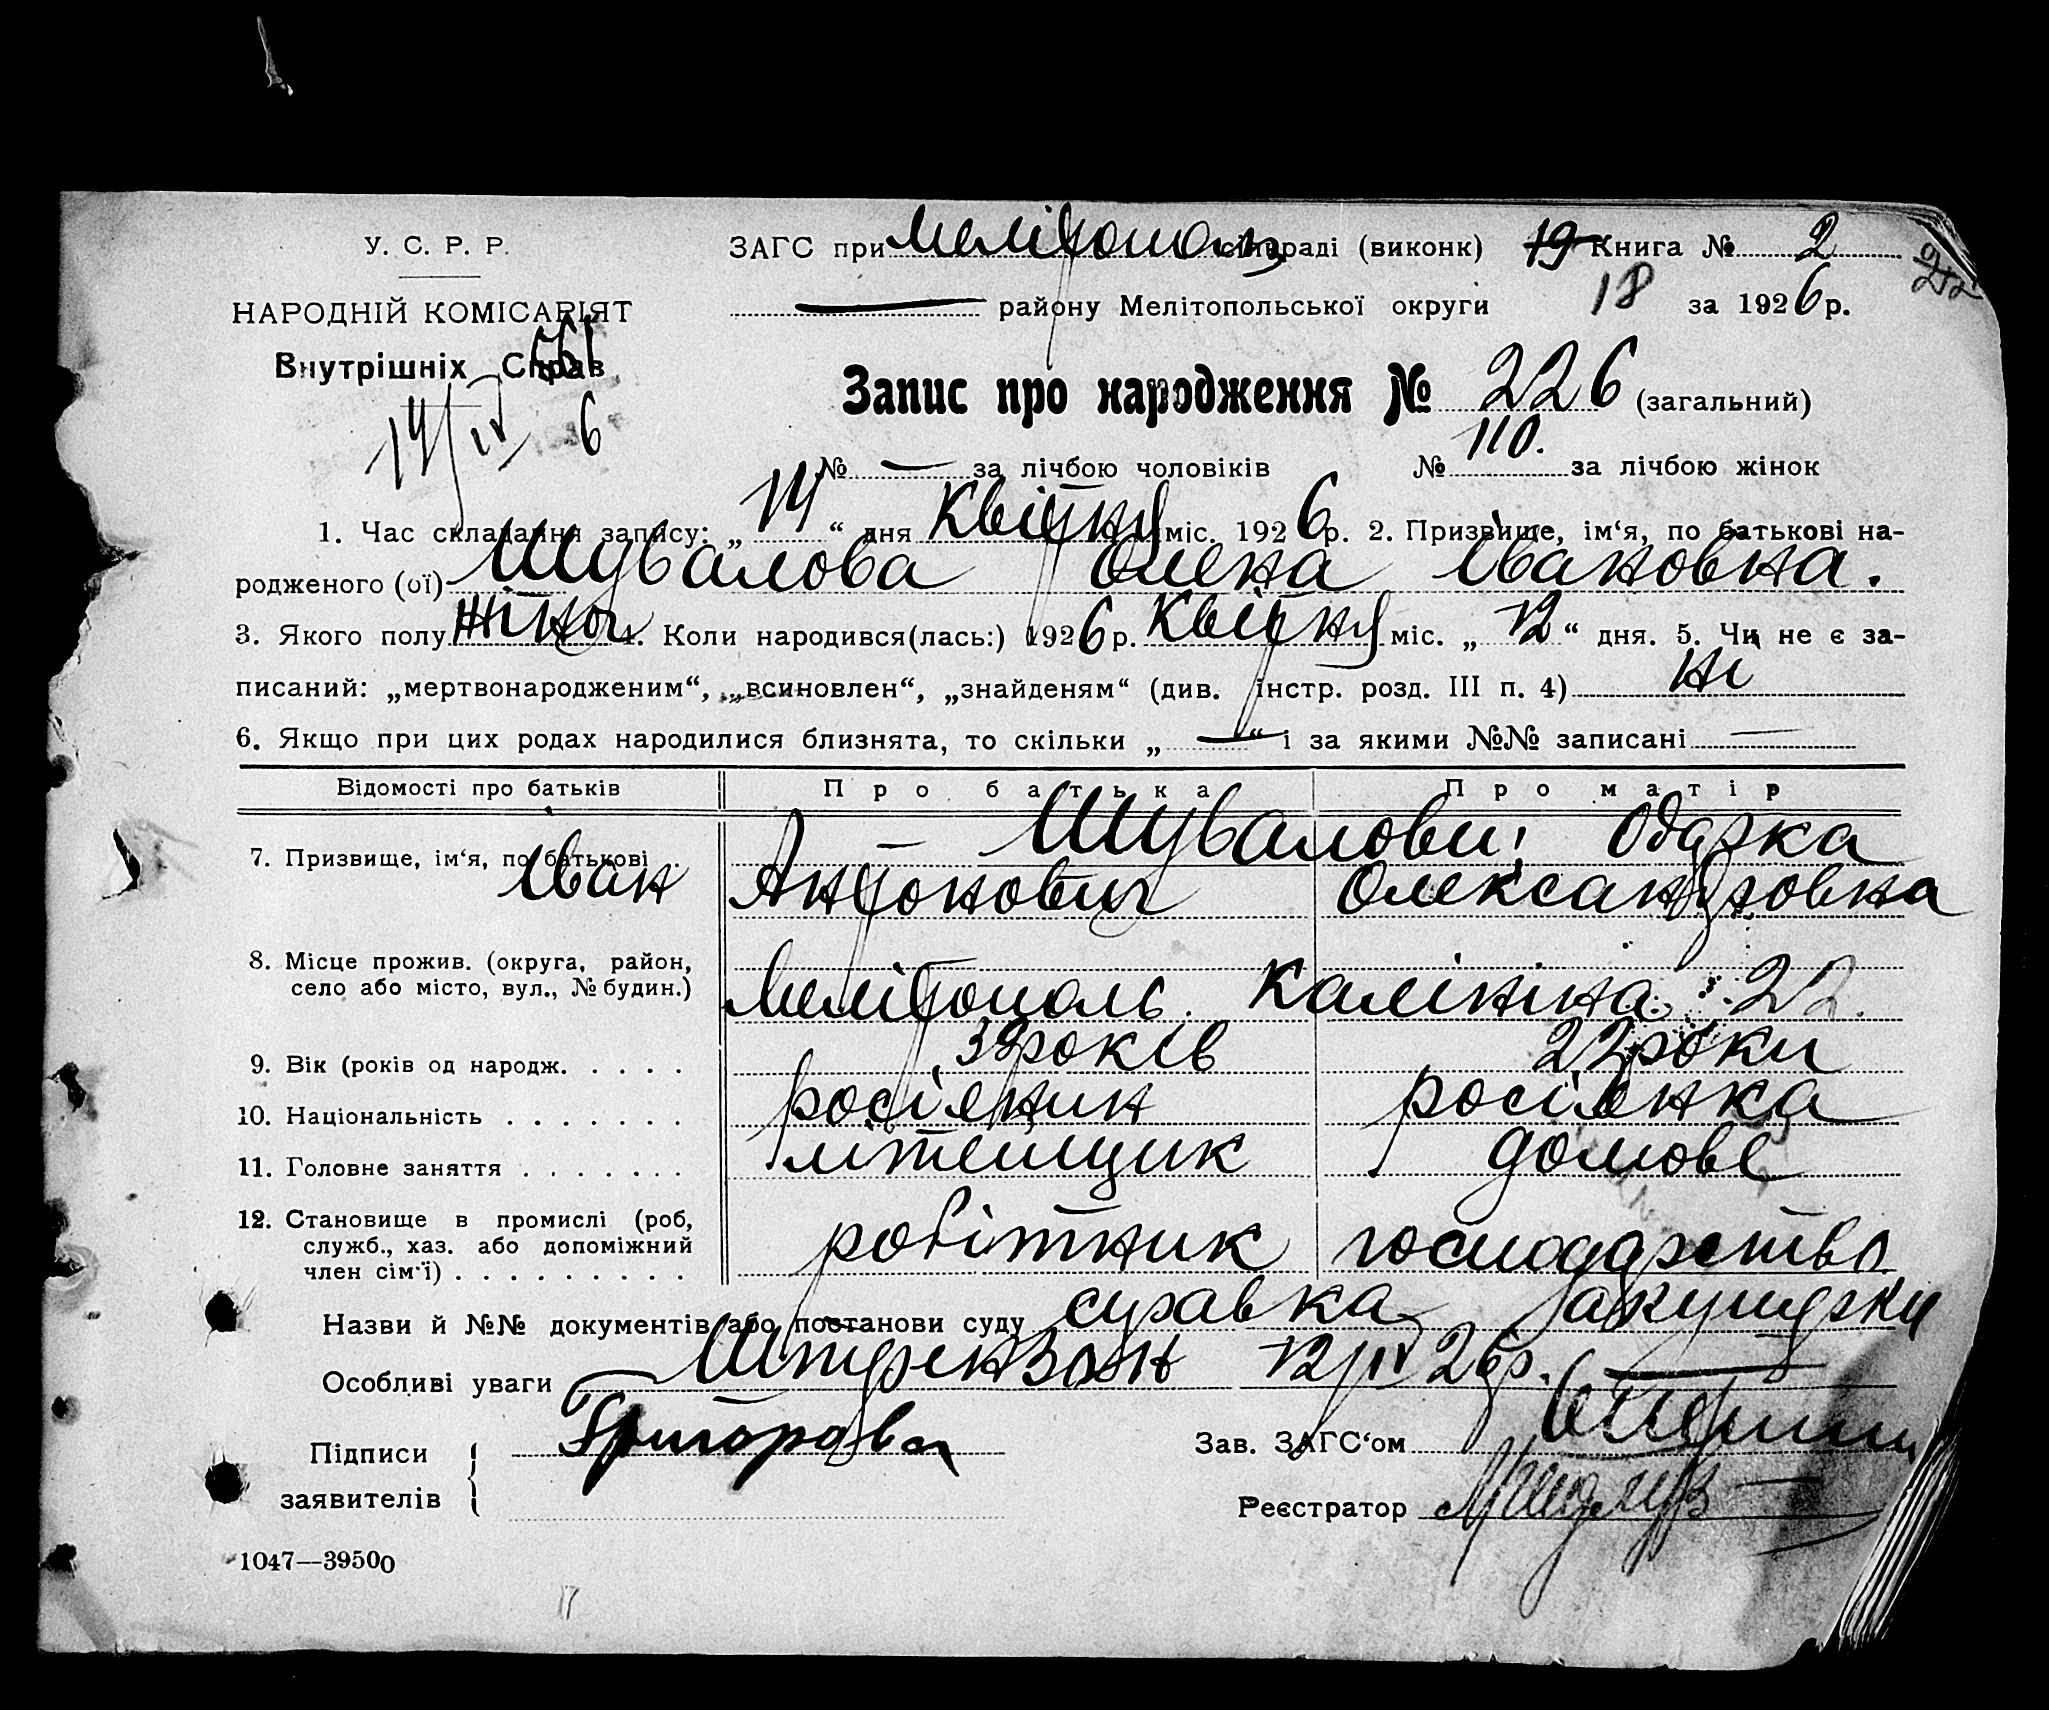 У. С. Р. Р.
НАРОДНІЙ КОМІСАРІЯТ
Внутрішніх Справ
561
14/IV 6
ЗАГС при Мелітополь сільраді (виконк) 19 Книга № 2
району Мелітопольської округи 18 за 1926 р.
Запис про народження № 226 (загальний)
№ — за лічбою чоловіків № 110. за лічбою жінок
1. Час складання запису: „14“ дня Квітня міс. 1926 р. 2. Призвище, ім‘я, по батькові на-
родженого (ої) Шувалова Олена Івановна.
3. Якого полу жіноч 4. Коли народився(лась:) 1926 р. Квітня міс. „12“ дня. 5. Чи не є за-
писаний: „мертвонародженим“, „всиновлен“, „знайденям“ (див. інстр. розд. III п. 4) ні
6. Якщо при цих родах народилися близнята, то скільки „—“ і за якими №№ записані —
Відомості про батьків Про батька Про матір
7. Призвище, ім‘я, по батькові Шувалови: Одарка
Іван Антонович Олександровна
8. Місце прожив. (округа, район,
село або місто, вул., № будин.) Мелітополь Калініна 22.
9. Вік (років од народж. 39 років 22 роки
10. Національність росіянин росіянка
11. Головне заняття літейщик домове
12. Становище в промислі (роб,
служб., хаз. або допоміжний
член сім‘ї) робітник господарство
Назви й №№ документів або постанови суду справка акушерки
Особливі уваги 12/IV 26р.
Підписи
заявителів
Григорова
Зав. ЗАГС‘ом
Реєстратор
1047—39500